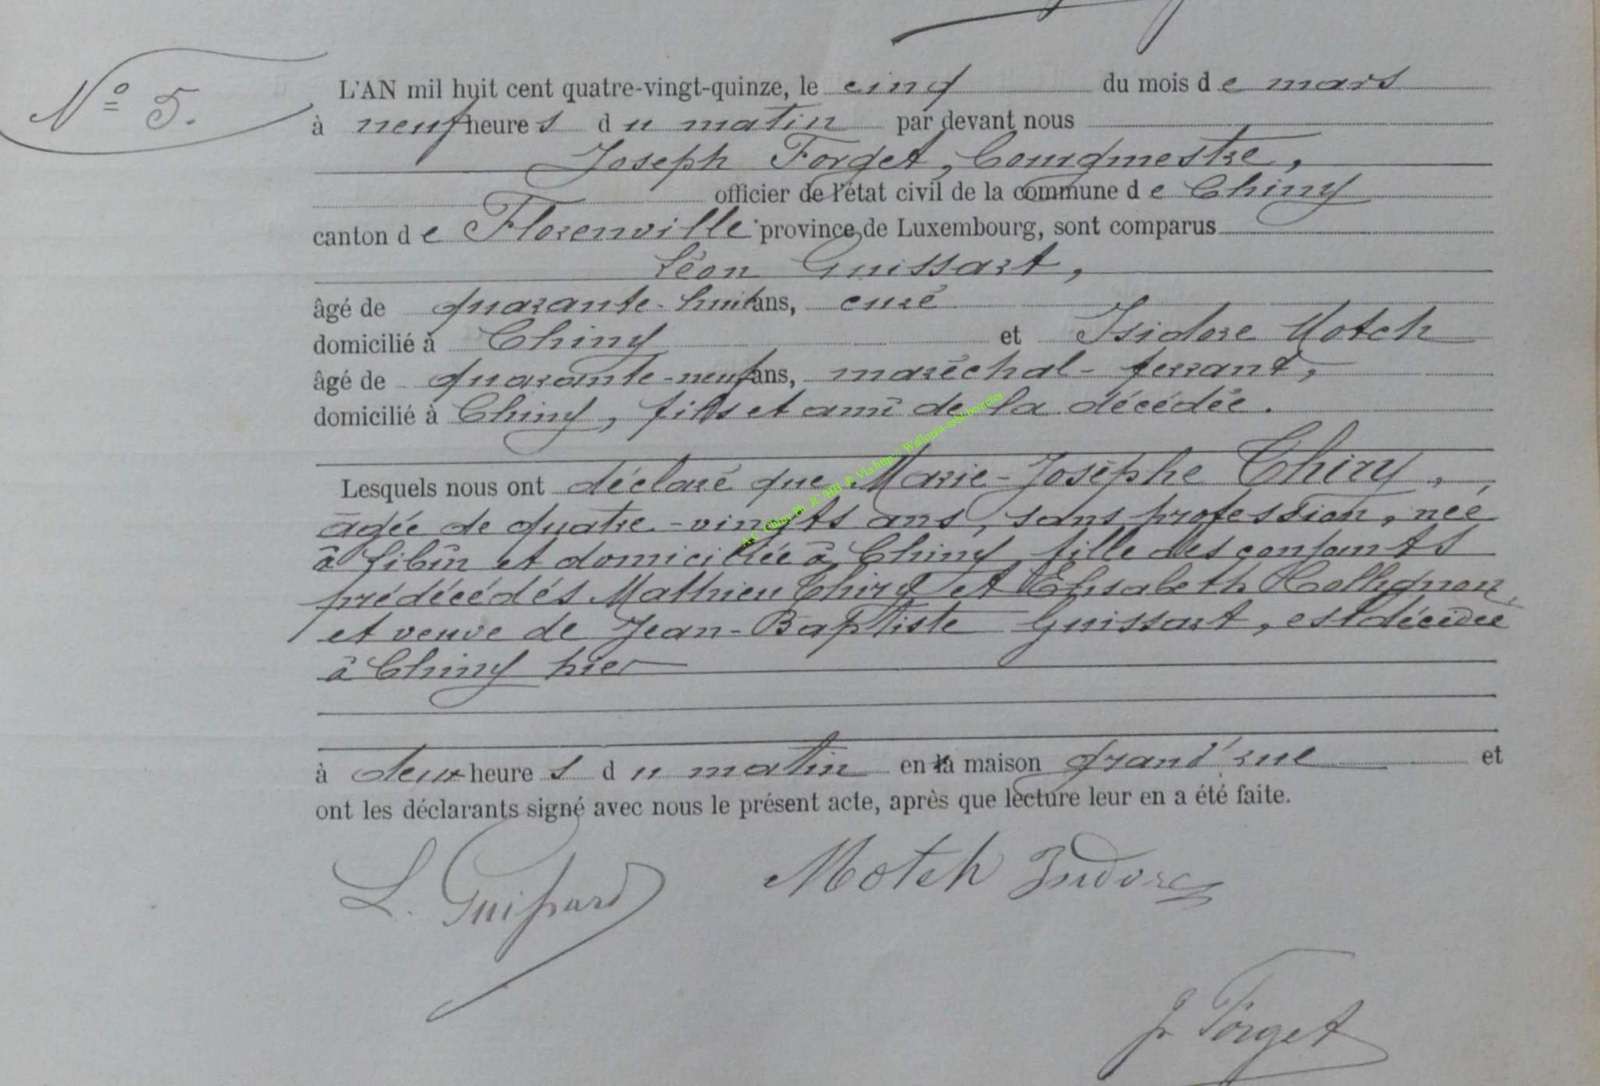 N° 5.
L'AN mil huit cent quatre-vingt-quinze, le cinq du mois de mars
à neuf heures du matin par devant nous
Joseph Forget, Bourgmestre,
officier de l'état civil de la commune de Chiny
canton de Florenville province de Luxembourg, sont comparus
Léon Guissart,
âgé de quarante-huit ans, curé
domicilié à Chiny et Isidore Motch
âgé de quarante-neuf ans, maréchal-ferrant,
domicilié à Chiny, fils et ami de la décédée.
Lesquels nous ont déclaré que Marie-Josèphe Thiry,
âgée de quatre-vingts ans, sans profession, née
à Libin et domiciliée à Chiny, fille des conjoints
prédécédés Mathieu Thiry et Elisabeth Collignon,
et veuve de Jean-Baptiste Guissart, est décédée
à Chiny hier
à deux heures du matin en la maison grand'rue et
ont les déclarants signé avec nous le présent acte, après que lecture leur en a été faite.
L. Guissard Motch Isidore
J. Forget